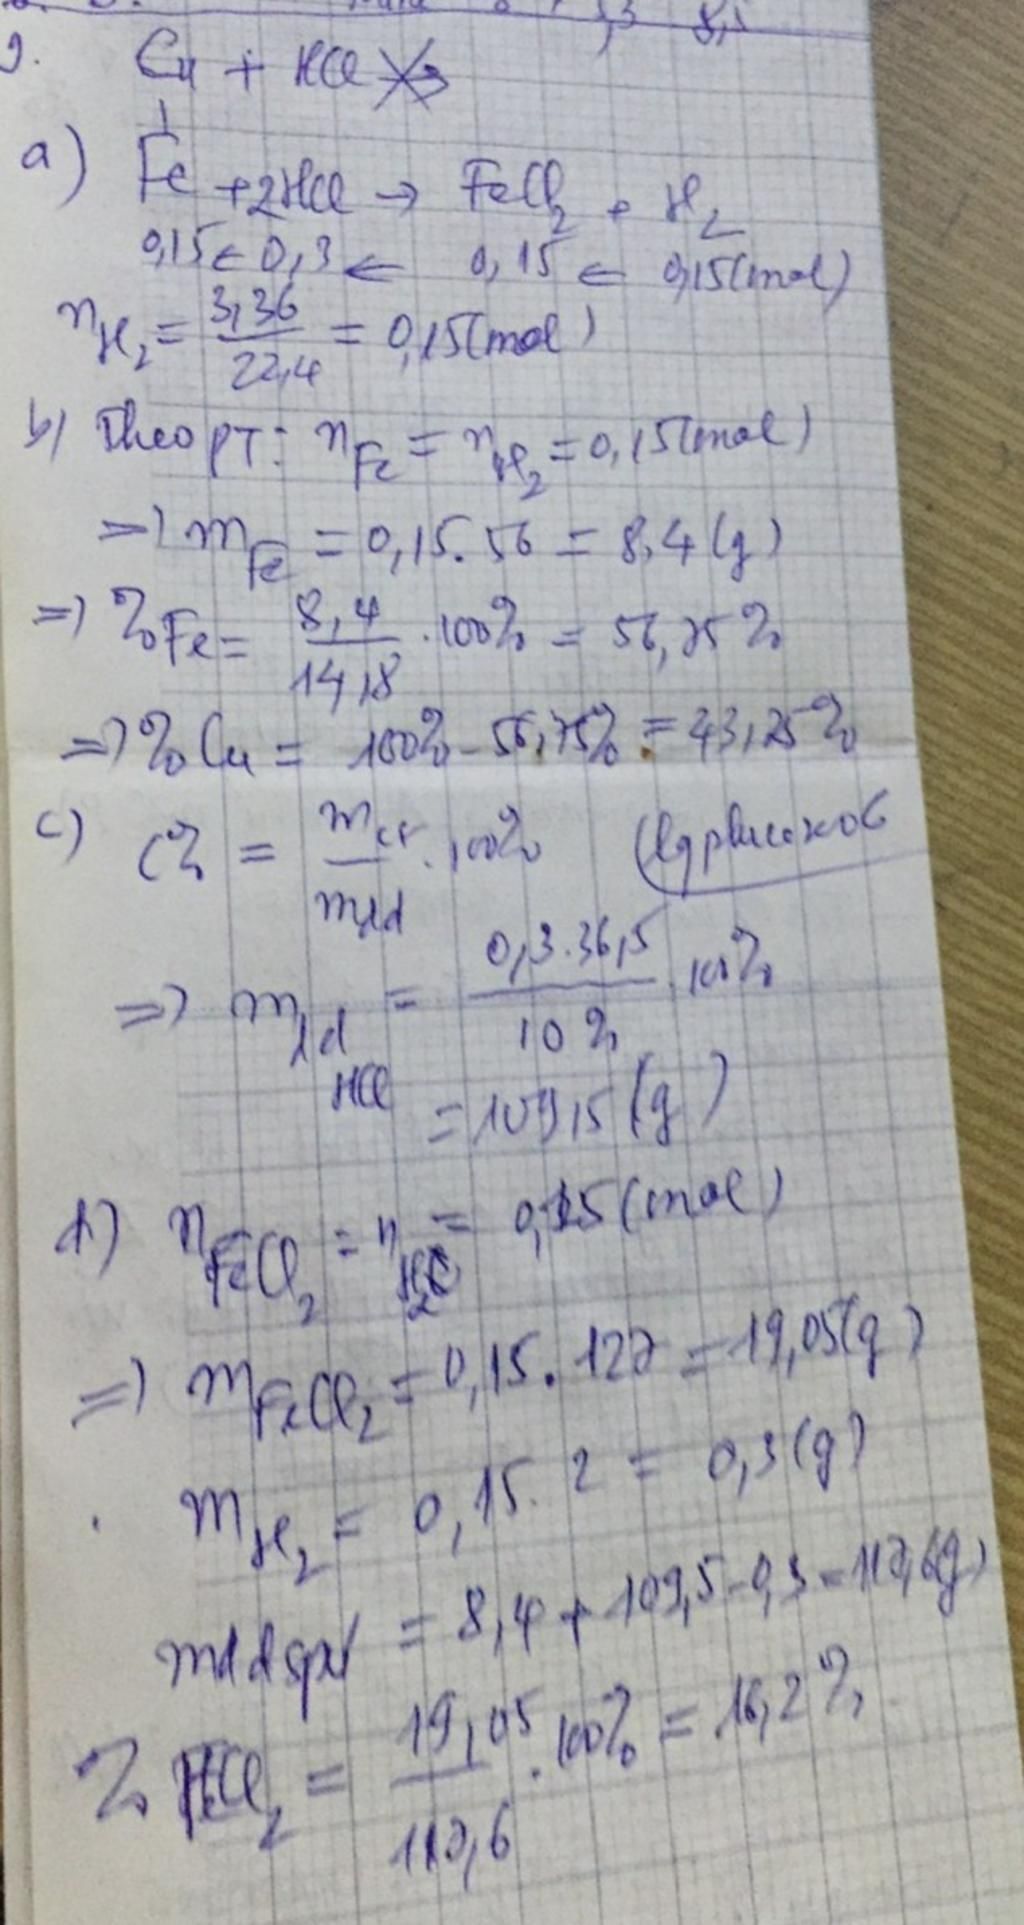 8,5
9. Cu + HCl
a) Fe + 2HCl → FeCl2 + H2
0,15 ← 0,3 ← 0,15 ← 0,15(mol)
nH2 = 3,36/22,4 = 0,15(mol)
b) Theo PT: nFe = nH2 = 0,15(mol)
=> mFe = 0,15.56 = 8,4(g)
=> %Fe = 8,4/14,8 .100% = 56,75%
=> %Cu = 100% - 56,75% = 43,25%
c) C% = mct/mdd .100%
=> mdd HCl = 0,3.36,5/10% .100%
= 109,5(g)
d) nFeCl2 = nH2 = 0,15(mol)
=> mFeCl2 = 0,15.127 = 19,05(g)
mH2 = 0,15.2 = 0,3(g)
mddspư = 8,4 + 109,5 - 0,3 = 117,6(g)
% FeCl2 = 19,05/117,6 .100% = 16,2%